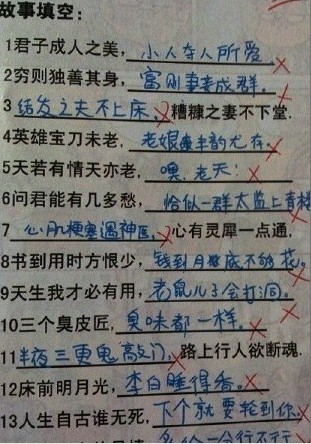 故事填空：
1君子成人之美，小人夺人所爱
2穷则独善其身，富则妻妾成群．
3结发之夫不上床，糟糠之妻不下堂．
4英雄宝刀未老，老娘風丰韵尤存．
5天若有情天亦老，噢，老天：
6问君能有几多愁，恰似一群太监上青楼
7心肌梗塞遇神医，心有灵犀一点通．
8书到用时方恨少，钱到月底不够花。
9天生我才必有用，老鼠儿子会打洞。
10三个臭皮匠，臭味都一样。
11半夜三更鬼敲门，路上行人欲断魂．
12床前明月光，李白睡得香。
13人生自古谁无死，下个就要轮到你